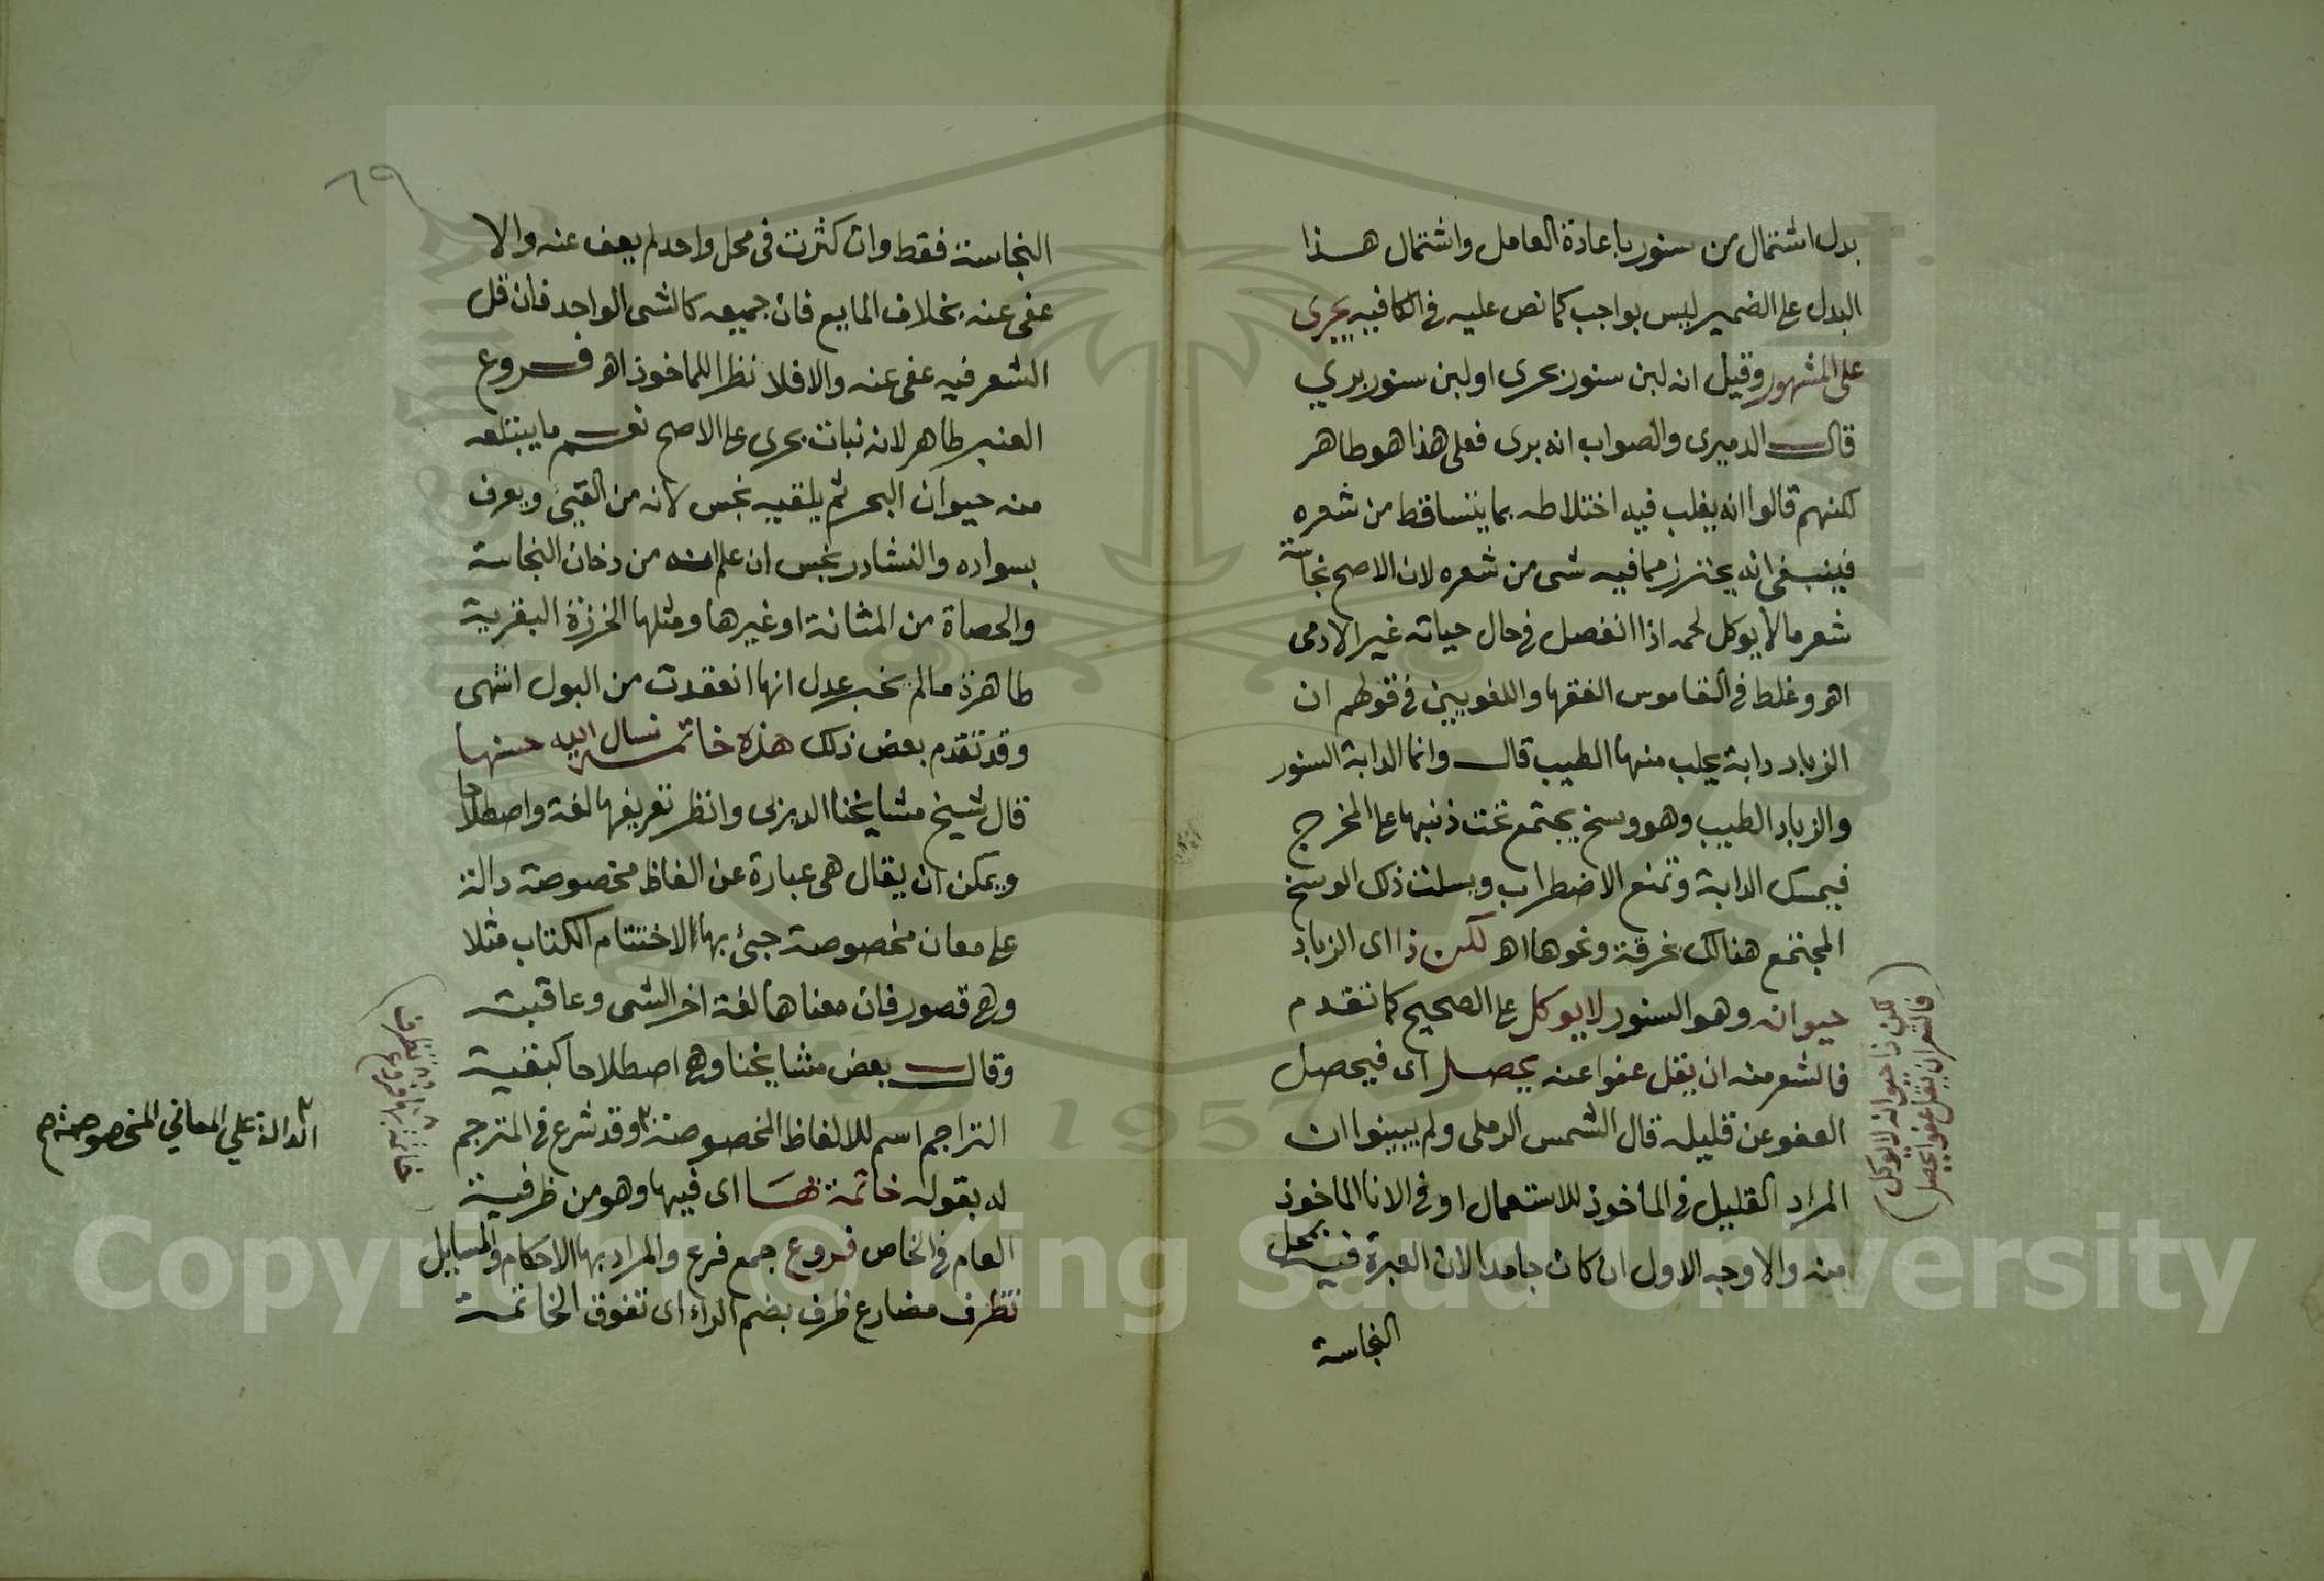 بدل اشتمال من سنور باعادة العامل واشتمال هذا
البدل على الضمير ليس بواجب كما نص عليه في الكافيه بحرى
على المشهور وقيل انه لبن سنور بحرى او لبن سنور بري
قال الدميرى والصواب انه برى فعلى هذا هو طاهر
لكنهم قالوا انه يغلب فيه اختلاطه بما يتساقط من شعره
فينبغى انه يحترز مما فيه شى من شعره لان الاصح نجاسة
شعر ما لا يوكل لحمه اذا انفصل فى حال حياته غير الادمى
اهـ وغلط فى القاموس الفقها واللغويين فى قولهم ان
الزباد دابة يحلب منها الطيب قال وانما الدابة السنور
والزباد الطيب وهو وسخ يجتمع تحت ذنبها على المخرج
فيمسك الدابة وتمنع الاضطراب ويسلت ذلك الوسخ
المجتمع هنالك بخرقة ونحوها اهـ لكن ذا اى الزباد
حيوانه وهو السنور لا يوكل على الصحيح كما تقدم
فالشعر منه ان يقل عفوا عنه يحصل اى فيحصل
العفو عن قليله قال الشمس الرملى ولم يبينوا ان
المراد القليل فى الماخوذ للاستعمال او فى الانا الماخوذ
منه والاوجه الاول ان كان جامدا لان العبرة فيه بمحل
النجاسة
لكن ذا حيوانه لا يوكل
فالشعر ان يقل عفوا يحصل
٦٩
النجاسة فقط وان كثرت فى محل واحد لم يعف عنه والا
عفى عنه بخلاف المايع فان جميعه كالشى الواحد فان قل
الشعر فيه عفى عنه والا فلا نظرا للماخوذ اهـ فروع
العنبر طاهر لانه نبات بحرى على الاصح نعم ما يبتلعه
منه حيوان البحر ثم يلقيه نجس لانه من القيئ ويعرف
بسواده والنشادر نجس ان علم انه من دخان النجاسة
والحصاة من المثانة او غيرها ومثلها الخرزة البقرية
طاهرة ما لم يخبر عدل انها انعقدت من البول انتهى
وقد تقدم بعض ذلك هذه خاتمة نسال الله حسنها
قال شيخ مشايخنا الديربى وانظر تعريفها لغة واصطلاحا
ويمكن ان يقال هى عبارة عن الفاظ مخصوصة دالة
على معان مخصوصة جيئ بها لاختتام الكتاب مثلا
وهى قصور فان معناها لغة اخر الشى وعاقبته
وقال بعض مشايخنا وهى اصطلاحا كبقية
التراجم اسم للالفاظ المخصوصة وقد شرع فى المترجم
له بقوله خاتمة بها اى فيها وهو من ظرفية
العام فى الخاص فروع جمع فرع والمراد بها الاحكام والمسايل
تظرف مضارع ظرف بضم الراء اى تفوق الخاتمة
الدالة على المعاني المخصوصة صح